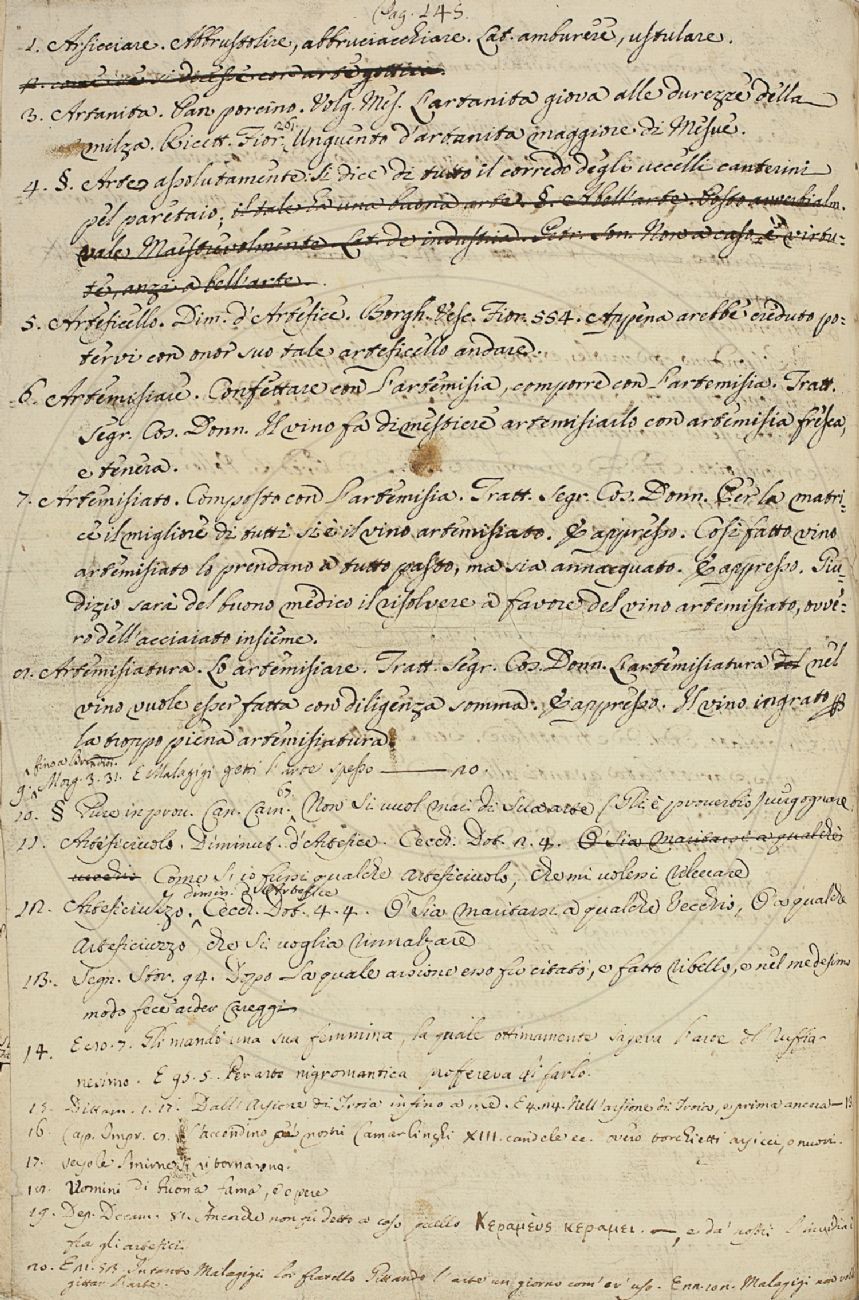 Pag. 245.
1. Arsicciare. Abbrustolire, abbruciacchiare. Lat. amburere, ustulare.
2. come se si dicesse con arte gottica.
3. Artanita. Pan porcino. Volg. Mes. L'artanita giova alle durezze della
milza. Ricett. Fior. 261. Unguento d'artanita maggiore di Mesue.
4. §. Arte assolutamente si dice di tutto il corredo degli uccelli canterini
pel paretaio; il tale ha una buona arte. §. A bell'arte. Posto avverbialm.
vale Maestrevolmente. Lat. de industria. Fior. Son. Non a caso è virtu-
te, anzi a bell'arte.
5. Arteficello. Dim. d'Artefice. Borgh. Vesc. Fior. 554. Appena arebbe creduto po-
tervi con onor suo tale arteficello andare.
6. Artemisiare. Confettare con l'artemisia, comporre con l'artemisia. Tratt.
Segr. Cos. Donn. Il vino fa di mestiere artemisiarlo con artemisia fresca,
e tenera.
7. Artemisiato. Composto con l'artemisia. Tratt. Segr. Cos. Donn. Per la matri-
ce il migliore di tutti si è il vino artemisiato. E appresso. Così fatto vino
artemisiato lo prendano a tutto pasto, ma sia annacquato. E appresso. Giu-
dizio sarà del buono medico il risolvere a favore del vino artemisiato, ovve-
ro dell'acciaiato insieme.
8. Artemisiatura. Lo artemisiare. Tratt. Segr. Cos. Donn. L'artemisiatura del nel
vino vuole esser fatta con diligenza somma. E appresso. Il vino ingrato p
la troppo piena artemisiatura.
9. Morg. 3. 31. E Malagigi getti l'arte spesso ——— 20.
10. § Pure in prov. Can. Carn. 67. Non si vuol mai di sua arte (Gli è proverbio) vergognare
11. Arteficiuolo. Diminut. d'Artefice. Cecch. Dot. 2. 4. O sia maritarsi a qualche
vecchio Come s'io fussi qualche arteficiuolo, che mi volessi rilevare
12. Arteficiuzzo. dimin. d'Artefice Cecch. Dot. 4. 4. O sia maritarsi a qualche vecchio, O a qualche
Arteficiuzzo che si voglia rinnalzare
13. Segn. Stor. 94. Dopo la quale arsione esso fu citato, e fatto ribello, e nel medesimo
modo fece arder Careggi
14. E 10. 7. Gli mandò una sua femmina, la quale ottimamente sapeva l'arte del Ruffia-
nesimo. E 95. 5. Per arte nigromantica profereva di farlo.
15. Dittam. 1. 11. Dall'Arsione di Troia infino a me. E 4. 14. Nell'arsione di Troia, e prima ancora — 13
16 Cap. Impr. 8. L'accendino nostri Camarlinghi XIII. candele ec. overo torchietti arsicci, o nuovi.
17. ritornarono.
18. Uomini di buona fama, ed opere
19. Dep. Decam. 81. Ancorchè non fu detto a caso quello Κεραμεὺς κεραμει. —, e da' nostri l'invidia è
fra gli artefici.
20. Intanto Malagigi Gittando l'arte un giorno com'er' uso. Malagigi non volle
gittar l'arte.